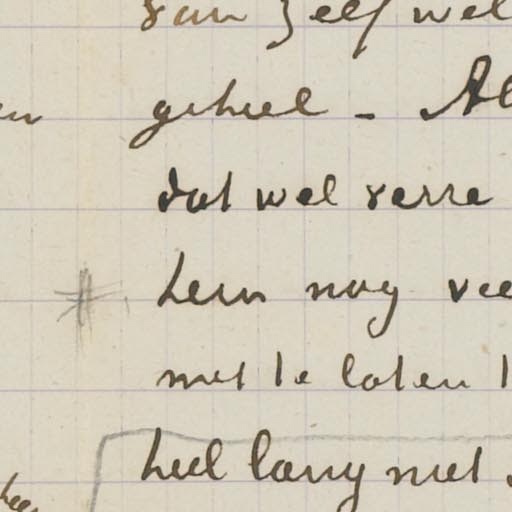 van zelf wel
geheel - Al
dat wel verre
hem nog vee
met te laten
heel lang met